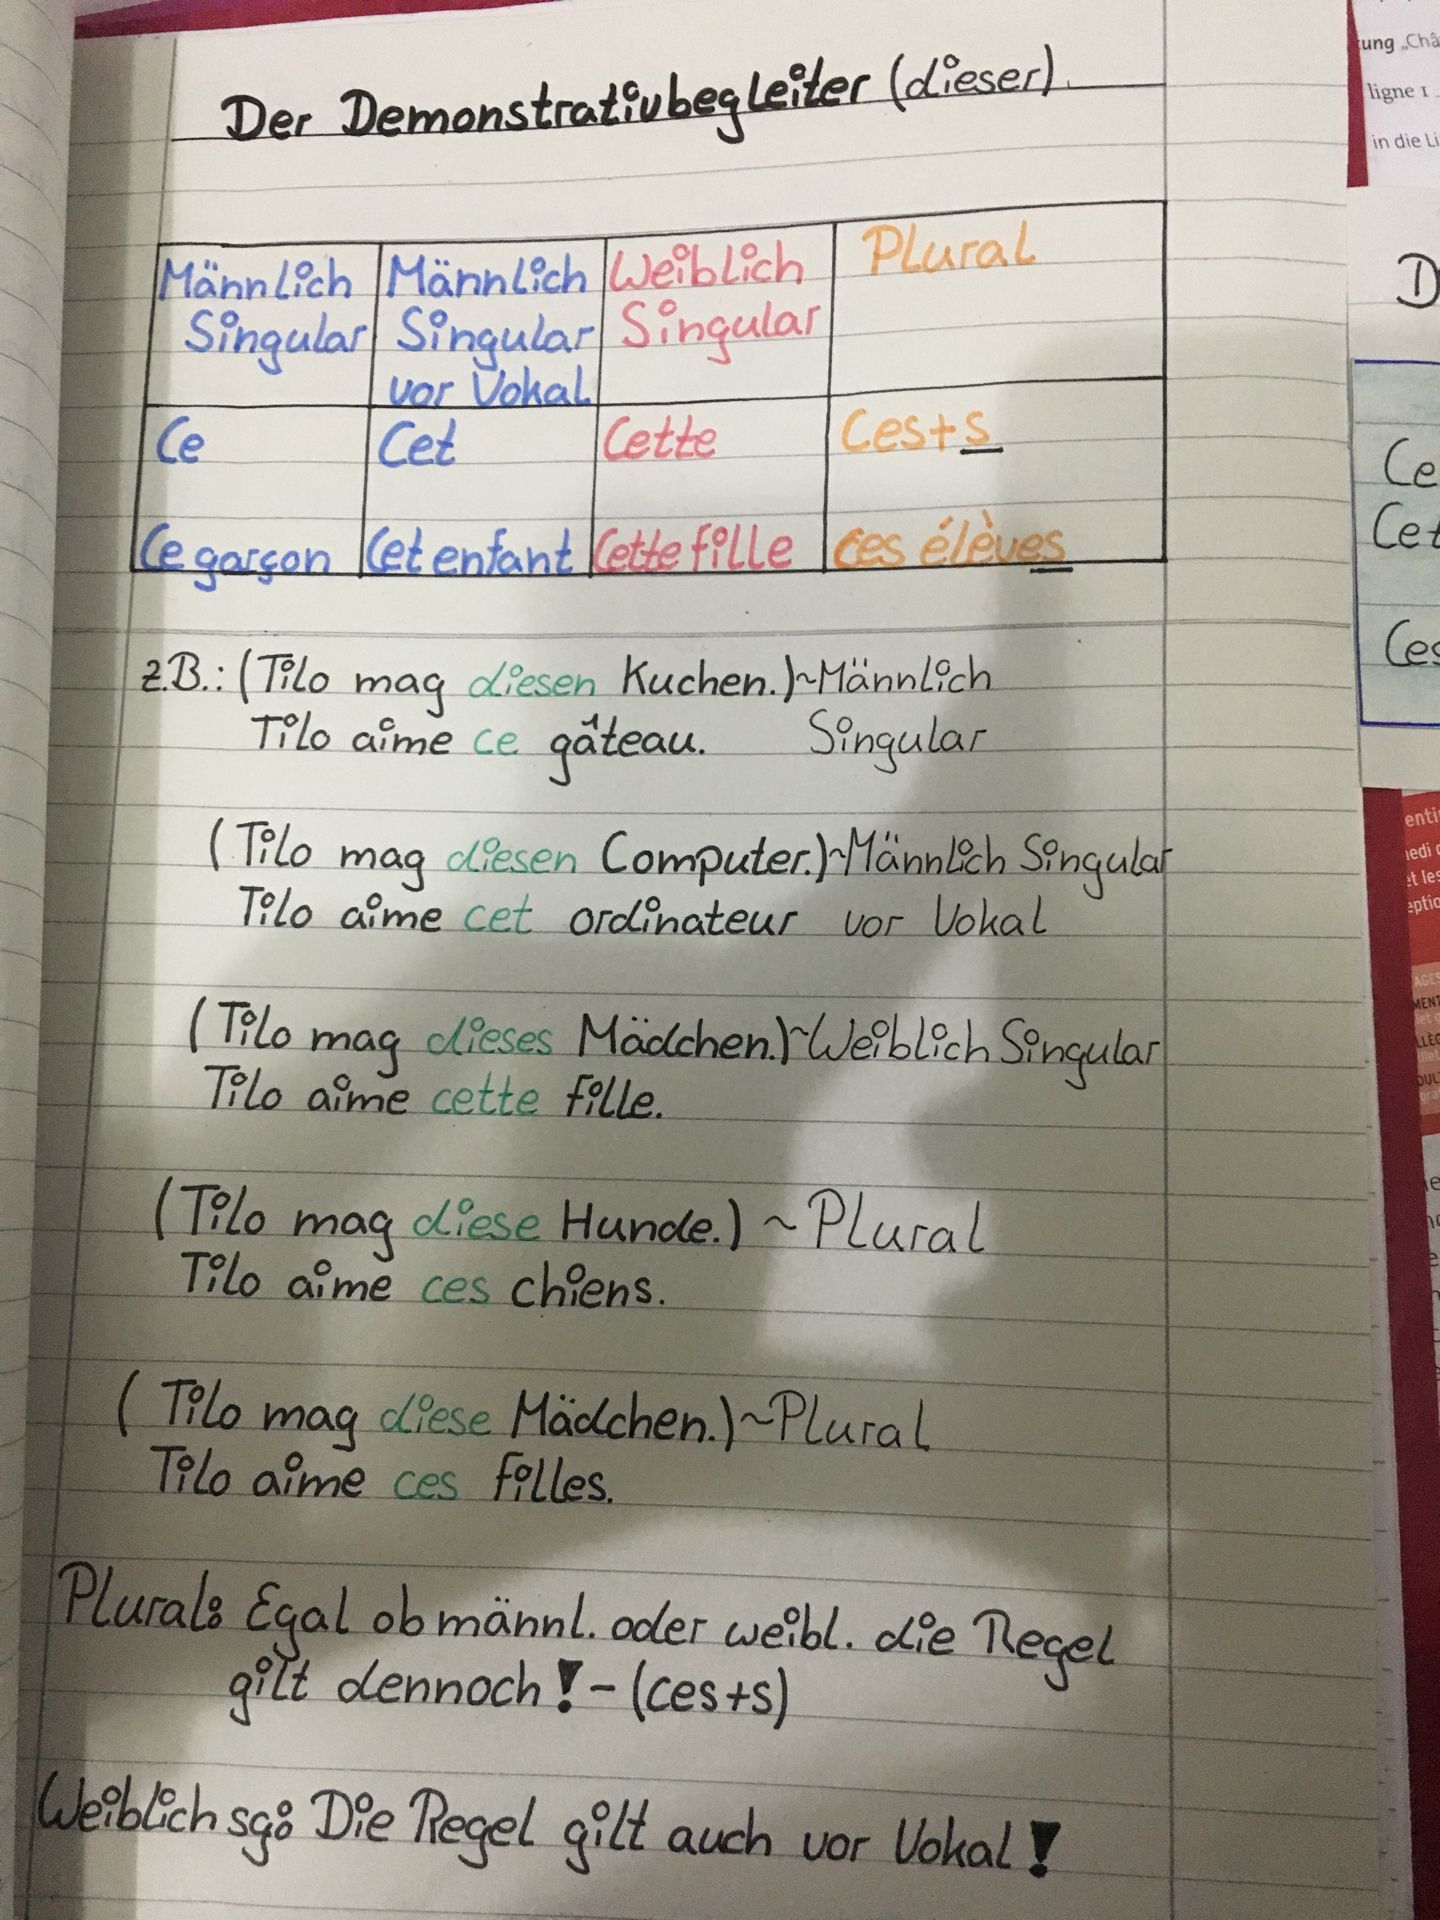 Der Demonstrativbegleiter (dieser).
Männlich Singular | Männlich Singular vor Vokal | Weiblich Singular | Plural
Ce | Cet | Cette | Ces+s
Ce garçon | Cet enfant | Cette fille | Ces élèves
z.B.: (Tilo mag diesen Kuchen.)~Männlich
Tilo aime ce gâteau. Singular
(Tilo mag diesen Computer.)~Männlich Singular
Tilo aime cet ordinateur vor Vokal
(Tilo mag dieses Mädchen.)~Weiblich Singular
Tilo aime cette fille.
(Tilo mag diese Hunde.) ~Plural
Tilo aime ces chiens.
(Tilo mag diese Mädchen.)~Plural
Tilo aime ces filles.
Plural: Egal ob männl. oder weibl. die Regel
gilt dennoch! - (ces+s)
Weiblich sg: Die Regel gilt auch vor Vokal!
ligne 1
in die Li
D
Ce
Cet
Ces